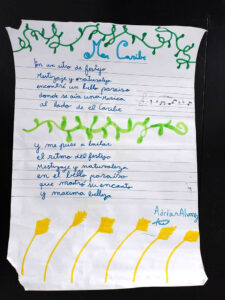 Mar Caribe
En un sitio de festejo
Mestizaje y naturaleza
encontré un bello paraiso
donde se oía una música
al lado de el Caribe
y me puse a bailar
el ritmo del festejo
Mestizaje y naturaleza
en el bello paraiso
que mostró su encanto
y maxima belleza
Adrian Alvarez